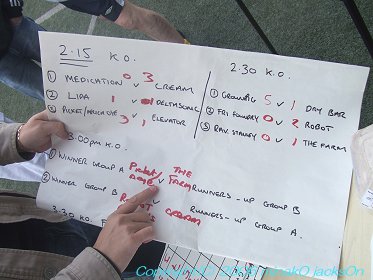 2.15 K.O.
① MEDICATION 0 v 3 CREAM
② LIPA 1 v DELTASONIC
③ 3 v 1 ELEVATOR
2.30 K.O.
① GROWING 5 v 1 DAY BAR
② FRI FOUNDRY 0 v 2 ROBOT
③ RAV. STANLEY 0 v 1 THE FARM
3.00PM K.O.
① WINNER GROUP A v THE FARM RUNNERS-UP GROUP B
② WINNER GROUP B v CREAM RUNNERS-UP GROUP A.
3.30 KO.
Copyright